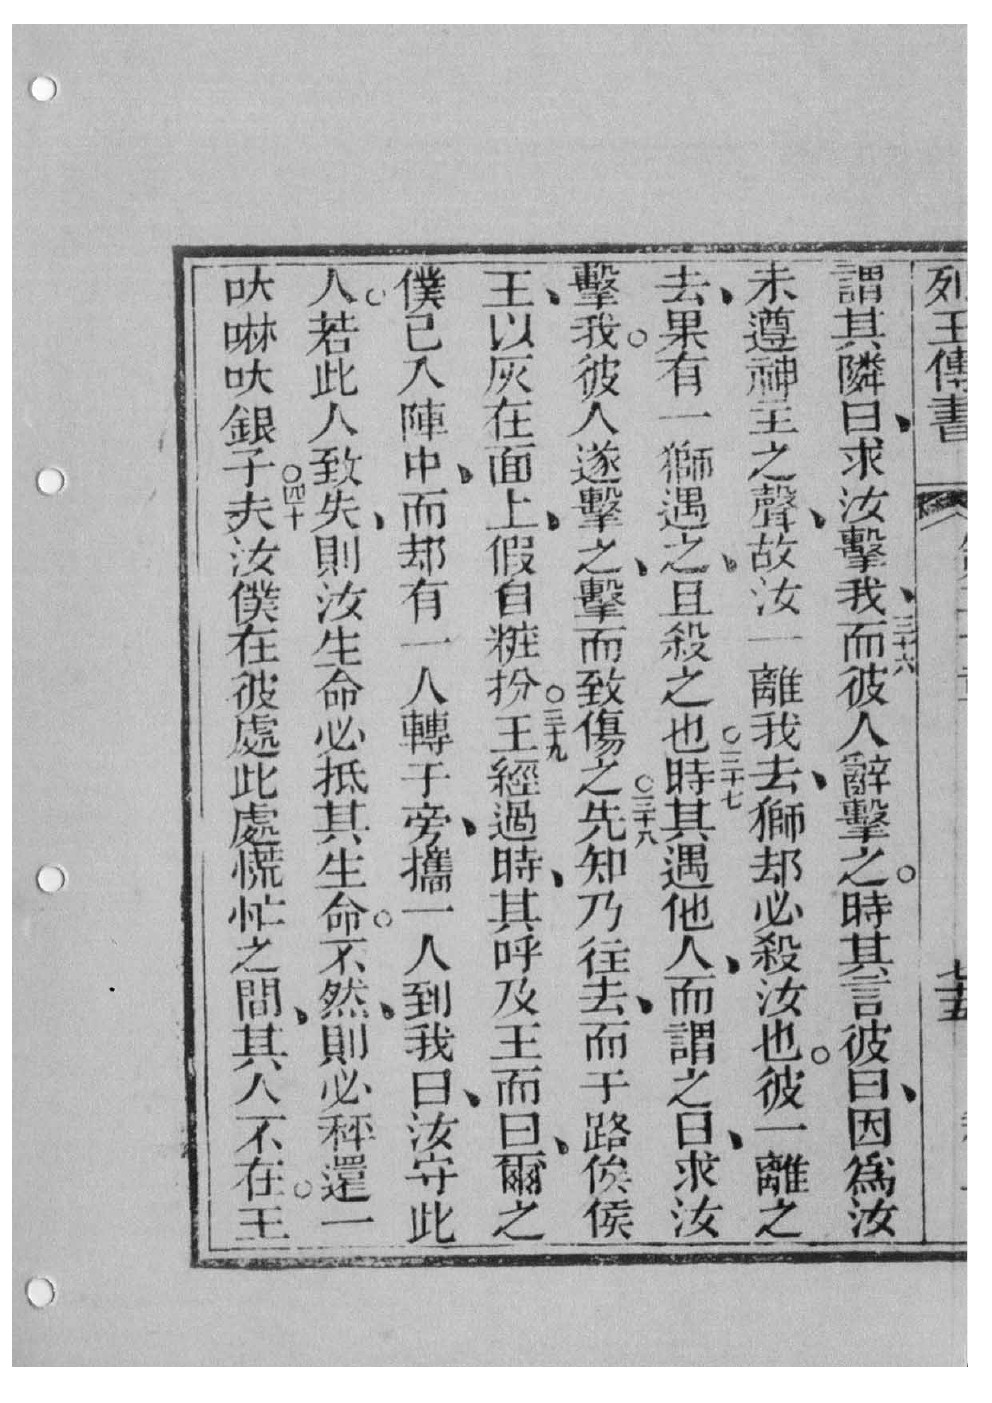 列王傳書
七十五
謂其隣曰、求汝擊我、三十六而彼人辭擊之。時其言彼曰、因為汝
未遵神主之聲、故汝一離我去、獅却必殺汝也。彼一離之
去、果有一獅遇之、且殺之也○三十七時其遇他人、而謂之曰、求汝
擊我。彼人遂擊之、擊而致傷之○三十八先知乃往去、而于路俟侯
王、以灰在面上、假自粧扮○三十九王經過時、其呼及王而曰、爾之
僕已入陣中、而却有一人轉于旁、攜一人到我曰、汝守此
人。若此人致失、則汝生命必抵其生命。不然、則必秤還一
吠啉吠銀子○四十夫汝僕在彼處此處慌忙之間、其人不在。王